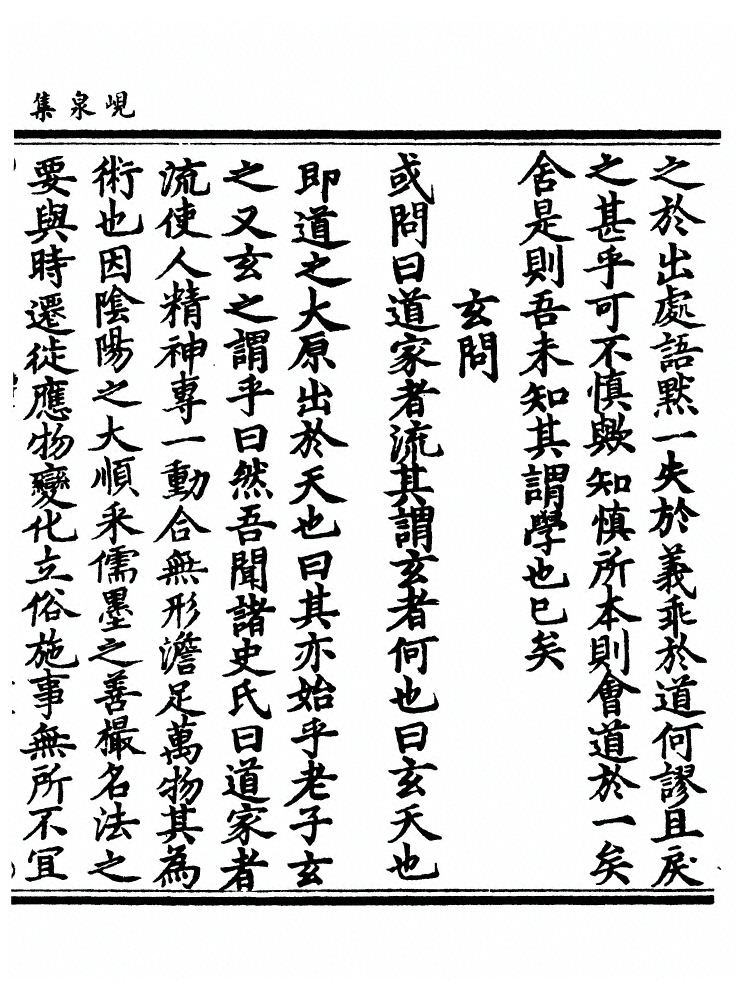 峴泉集
之於出處語默一失於義乖於道何謬且戾
之甚乎可不慎歟知慎所本則會道於一矣
舍是則吾未知其謂學也已矣
玄問
或問曰道家者流其謂玄者何也曰玄天也
即道之大原出於天也曰其亦始乎老子玄
之又玄之謂乎曰然吾聞諸史氏曰道家者
流使人精神專一動合無形澹足萬物其為
術也因陰陽之大順采儒墨之善撮名法之
要與時遷徙應物變化立俗施事無所不冝